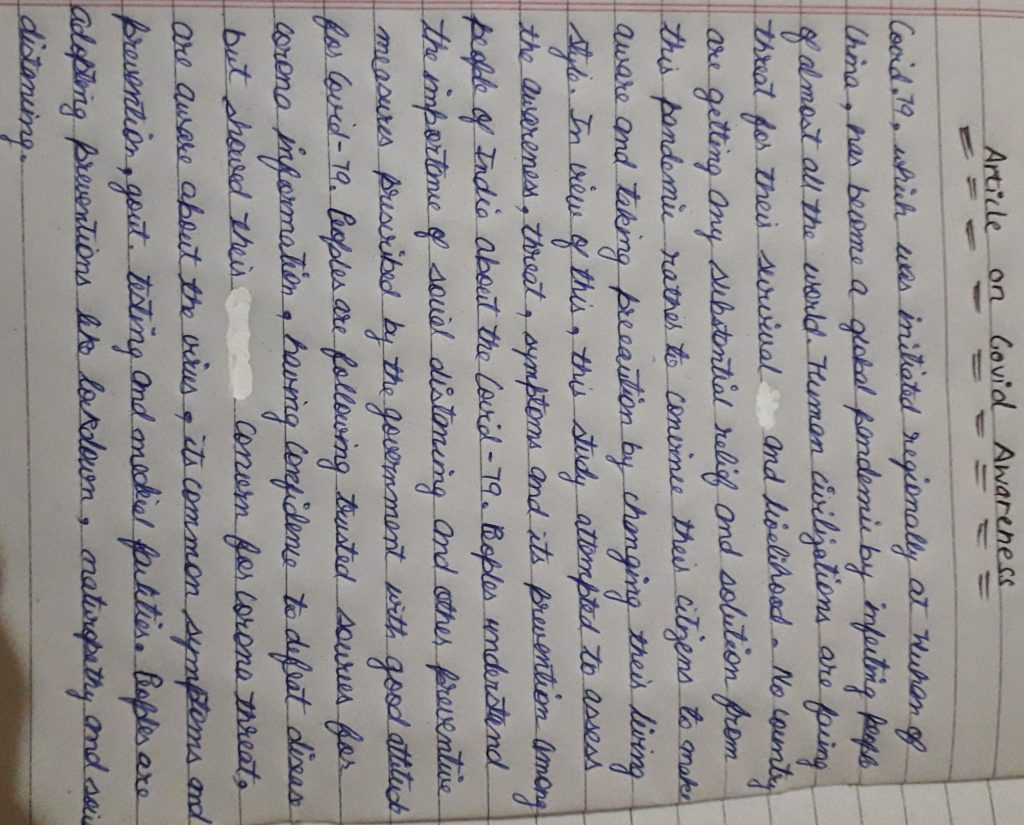 Article on Covid Awareness
Covid-19, which was initiated regionally at Wuhan of
China, has become a global pandemic by infecting people
of almost all the world. Human civilizations are facing
threat for their survival and livelihood. No country
are getting any substantial relief and solution from
this pandemic rather to convince their citizens to make
aware and taking precaution by changing their living
style. In view of this, this study attempted to assess
the awareness, threat, symptoms and its prevention among
people of India about the Covid-19. Peoples understand
the importance of social distencing and other preventive
measures priscribed by the government with good attitude
for Covid-19. Peoples are following trusted sources for
corona information, having confidence to defeat disease
but showed their concern for corona threat,
are aware about the virus, its common symptoms and
prevention, govt. testing and medical facilities. Peoples are
adopting preventions like lockdown, naturopathy and
distencing.